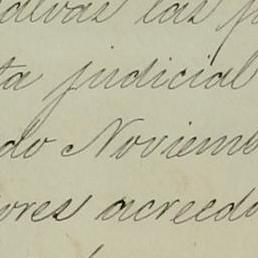 salvas las p
ta judicial
do Noviemb
ores acreedo